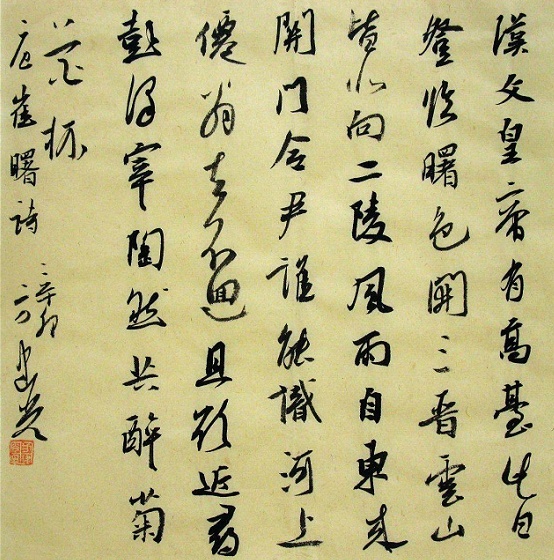 漢文皇帝有高臺此日
登臨曙色開三晉雲山
皆北向二陵風雨自東來
關門令尹誰能識河上
僊翁去不迴且欲近尋
彭澤宰陶然共醉菊
花杯
唐崔曙詩 辛卯